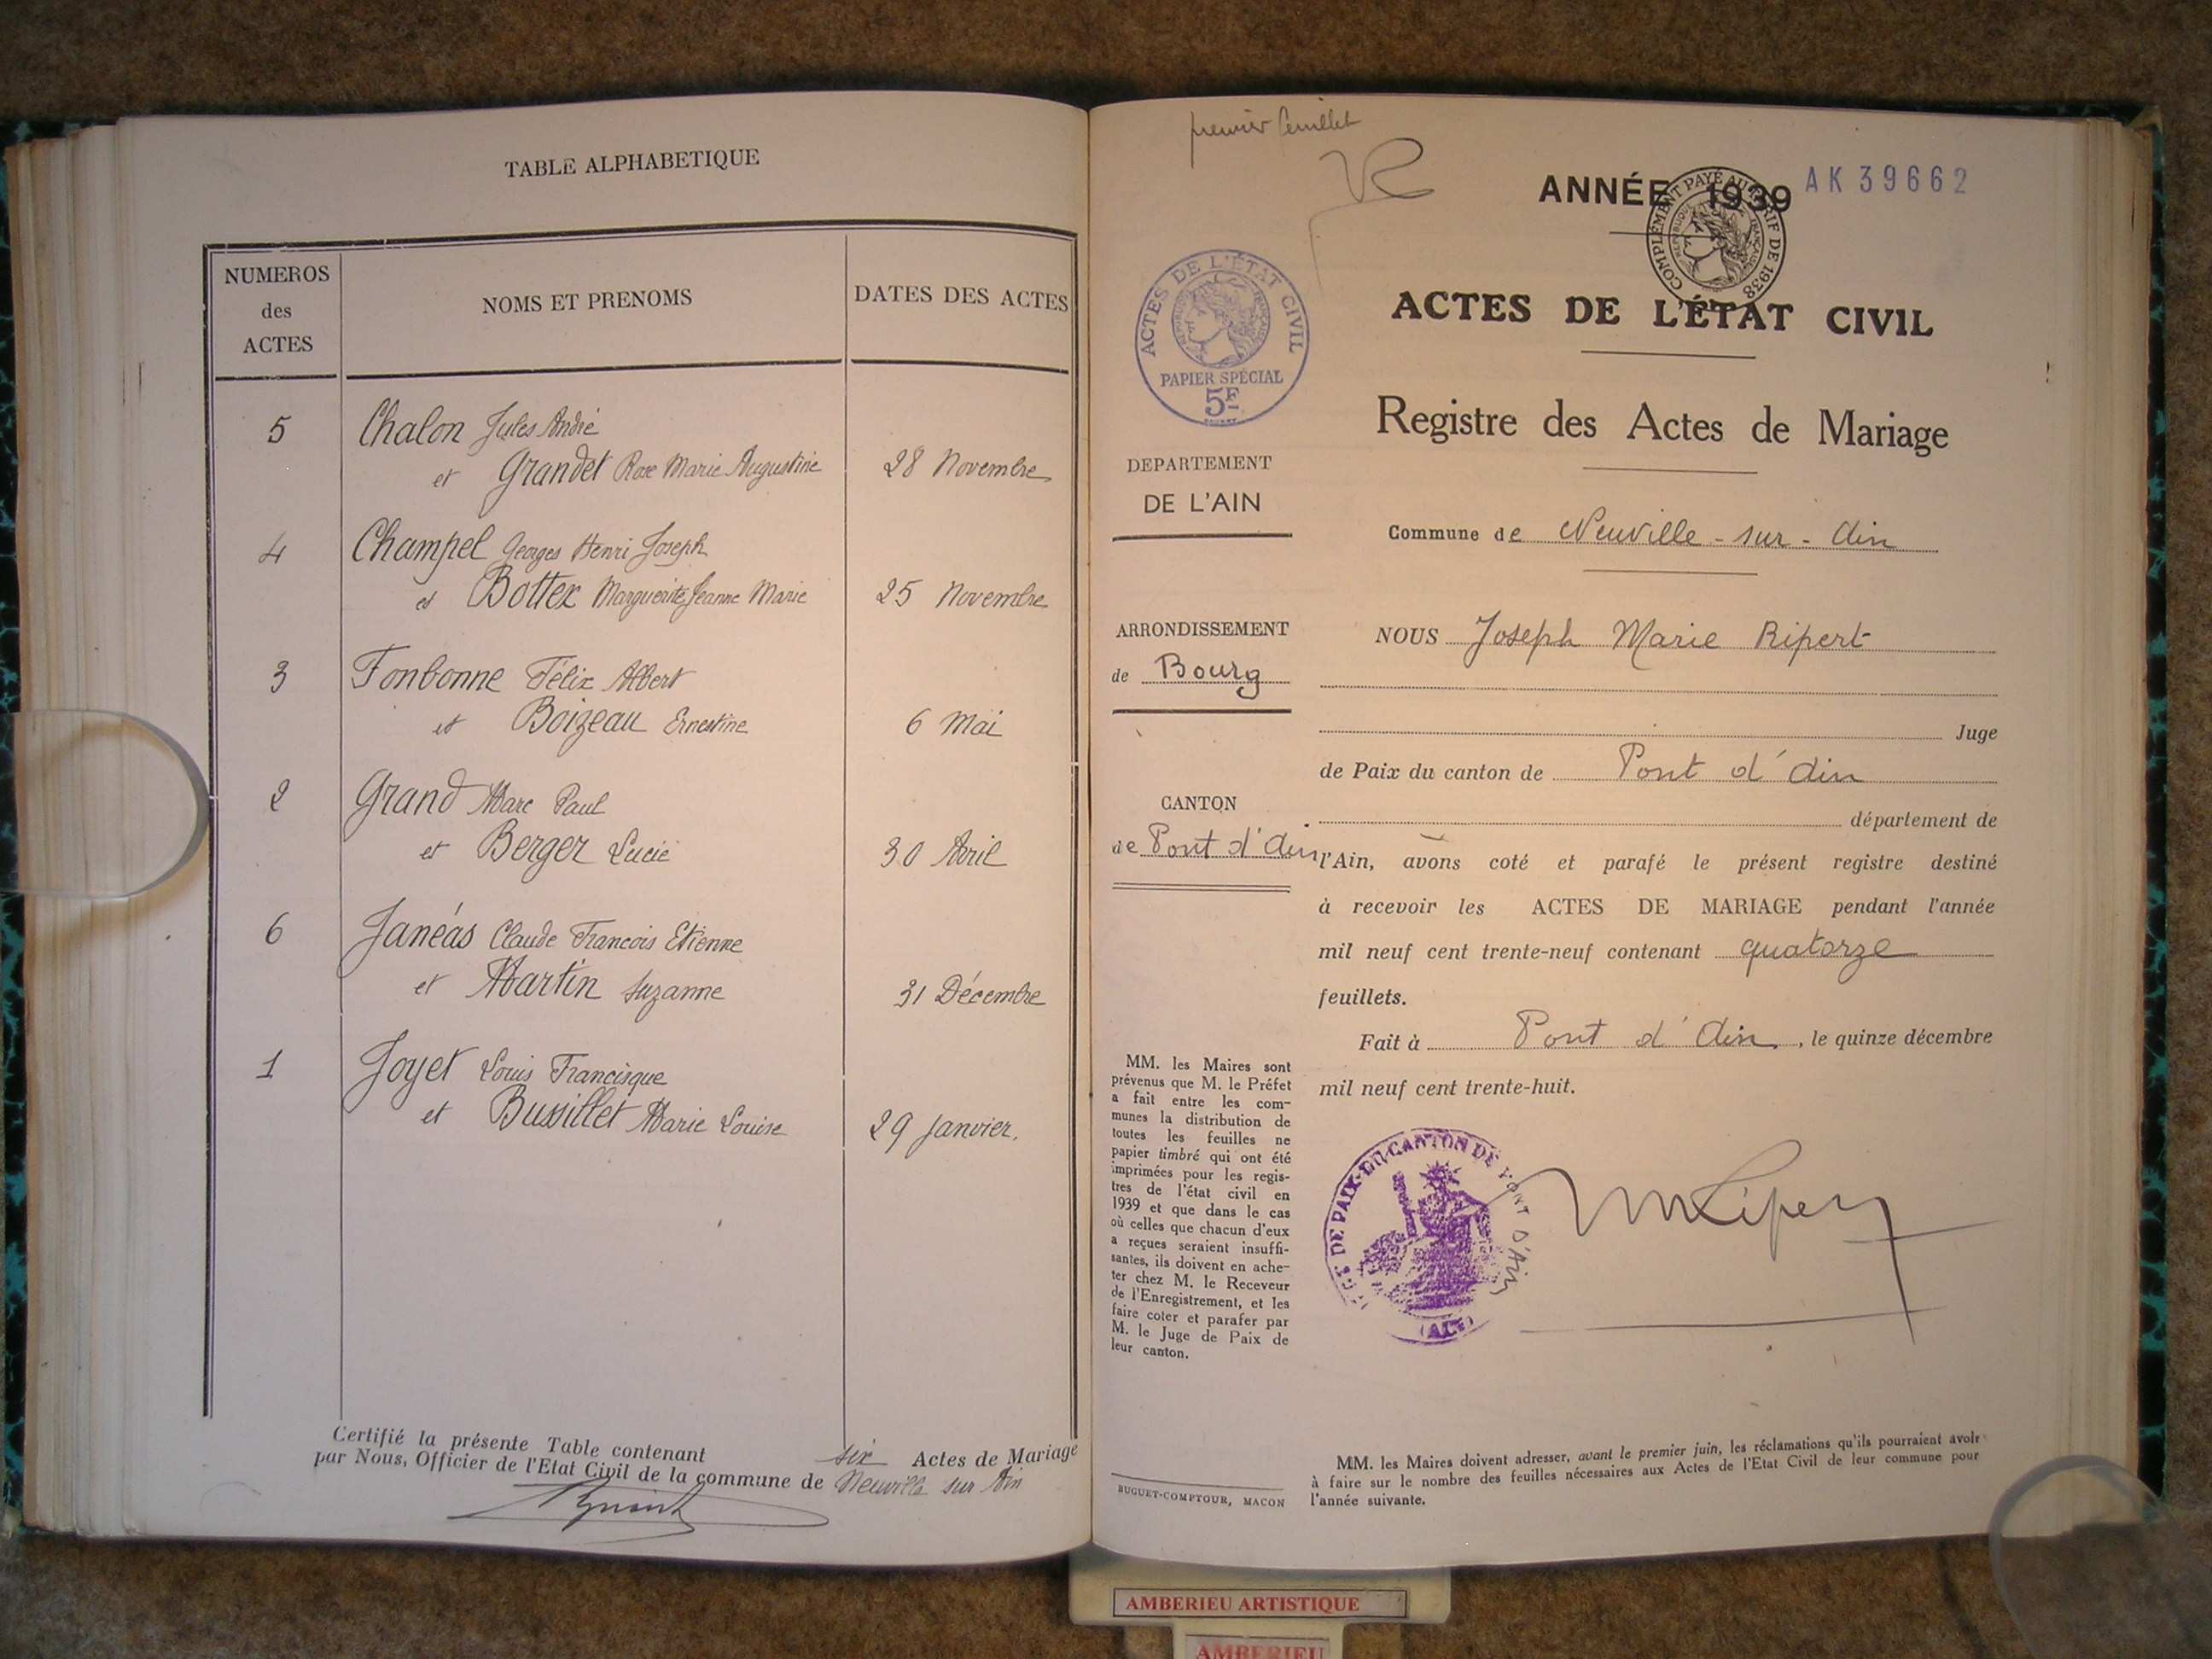 TABLE ALPHABETIQUE
NUMEROS
des
ACTES
NOMS ET PRENOMS
DATES DES ACTES
5 Chalon Jules André
et Grandet Rose Marie Augustine 28 Novembre
4 Champel Georges Henri Joseph
et Bottex Marguerite Jeanne Marie 25 Novembre
3 Fonbonne Félix Albert
et Boizeau Ernestine 6 Mai
2 Grand Marc Paul
et Berger Lucie 30 Avril
6 Janéas Claude Francois Etienne
et Martin Suzanne 31 Décembre
1 Joyet Louis Francisque
et Bussillet Marie Louise 29 Janvier.
Certifié la présente Table contenant six Actes de Mariage
par Nous, Officier de l'Etat Civil de la commune de Neuville sur Ain
premier feuillet
ANNÉE 1939
AK 39662
COMPLÉMENT PAYÉ AU TARIF DE 1938
RÉPUBLIQUE FRANÇAISE
ACTES DE L'ÉTAT CIVIL
RÉPUBLIQUE FRANÇAISE
PAPIER SPÉCIAL
5F
ACTES DE L'ÉTAT CIVIL
Registre des Actes de Mariage
DEPARTEMENT
DE L'AIN
Commune de Neuville-sur-Ain
ARRONDISSEMENT
de Bourg
CANTON
de Pont d'Ain
NOUS Joseph Marie Ripert
Juge
de Paix du canton de Pont d'Ain
département de
l'Ain, avons coté et parafé le présent registre destiné
à recevoir les ACTES DE MARIAGE pendant l'année
mil neuf cent trente-neuf contenant quatorze
feuillets.
Fait à Pont d'Ain, le quinze décembre
mil neuf cent trente-huit.
MM. les Maires sont
prévenus que M. le Préfet
a fait entre les com-
munes la distribution de
toutes les feuilles ne
papier timbré qui ont été
imprimées pour les regis-
tres de l'état civil en
1939 et que dans le cas
où celles que chacun d'eux
a reçues seraient insuffi-
santes, ils doivent en ache-
ter chez M. le Receveur
de l'Enregistrement, et les
faire coter et parafer par
M. le Juge de Paix de
leur canton.
DE PAIX DU CANTON DE PONT D'AIN
(AIN)
MM. les Maires doivent adresser, avant le premier juin, les réclamations qu'ils pourraient avoir
à faire sur le nombre des feuilles nécessaires aux Actes de l'Etat Civil de leur commune pour
l'année suivante.
BUGUET-COMPTOUR, MACON
AMBERIEU ARTISTIQUE
AMBERIEU